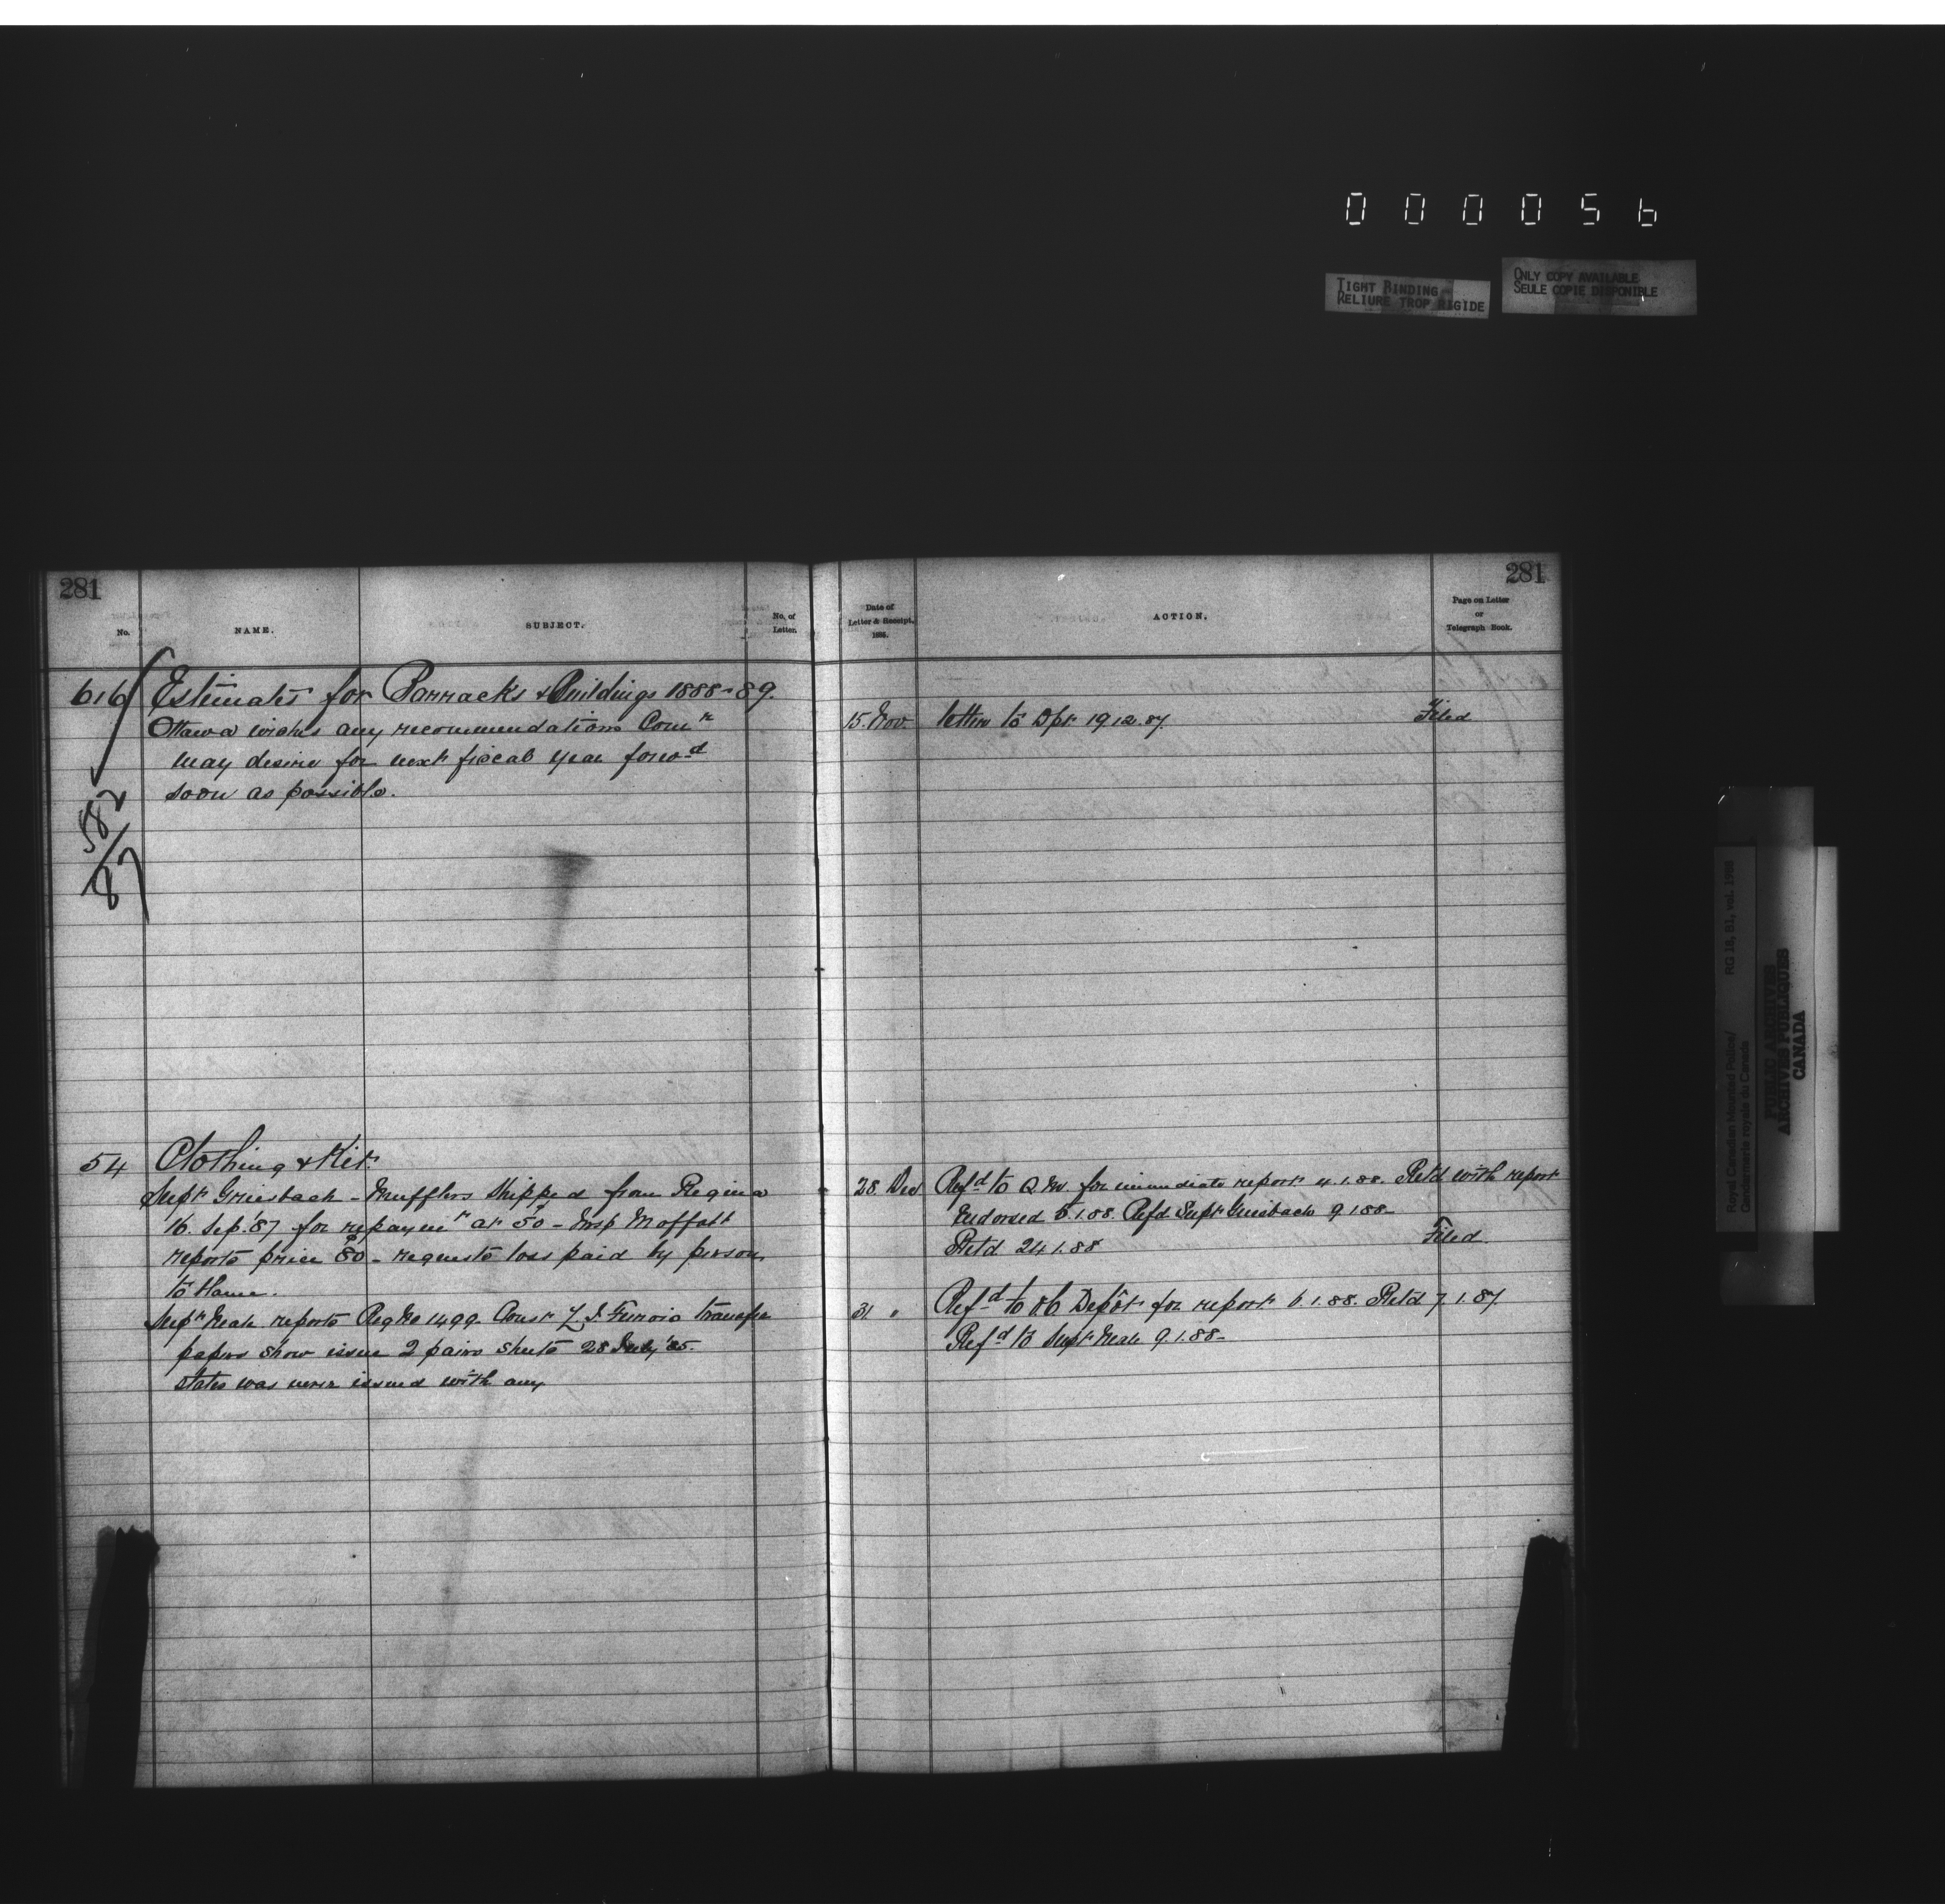 000056
TIGHT BINDING
RELIURE TROP RIGIDE
ONLY COPY AVAILABLE
SEULE COPIE DISPONIBLE
281
No.
NAME.
SUBJECT.
No. of
Letter.
616
Estimates for Barracks & Buildings 1888-89.
Ottawa wishes any recommendations Comr
may desire for next fiscal year forwd
soon as possible.
582
87
54
Clothing & Kit
Supt Griesbach - Mufflers shipped from Regina
16. Sep. '87 for repaymt at 50 - Insp Moffatt
reports price 80 - requests loss paid by person
to blame.
Supt Neale reports Reg No 1499 Const transfer
papers show issue 2 pairs sheets 28 July '85.
states was never issued with any
281
Date of
Letter & Receipt.
188
ACTION.
Page on Letter
or
Telegraph Book.
15. Nov. letter to Dpt 19 12. 87. Filed
28 Dec Refd to Q.M. for immediate report 4.1.88. Retd with report
Endorsed 5.1.88. Refd Supt Griesbach 9 1 88-
Retd 24 1.88 Filed
31 " Refd to Depôt for report 6.1.88. Retd 7.1.87.
Refd to Supt Neale 9.1.88-
Royal Canadian Mounted Police/
Gendarmerie royale du Canada
RG 18, B1, vol. 1986
PUBLIC ARCHIVES
ARCHIVES PUBLIQUES
CANADA